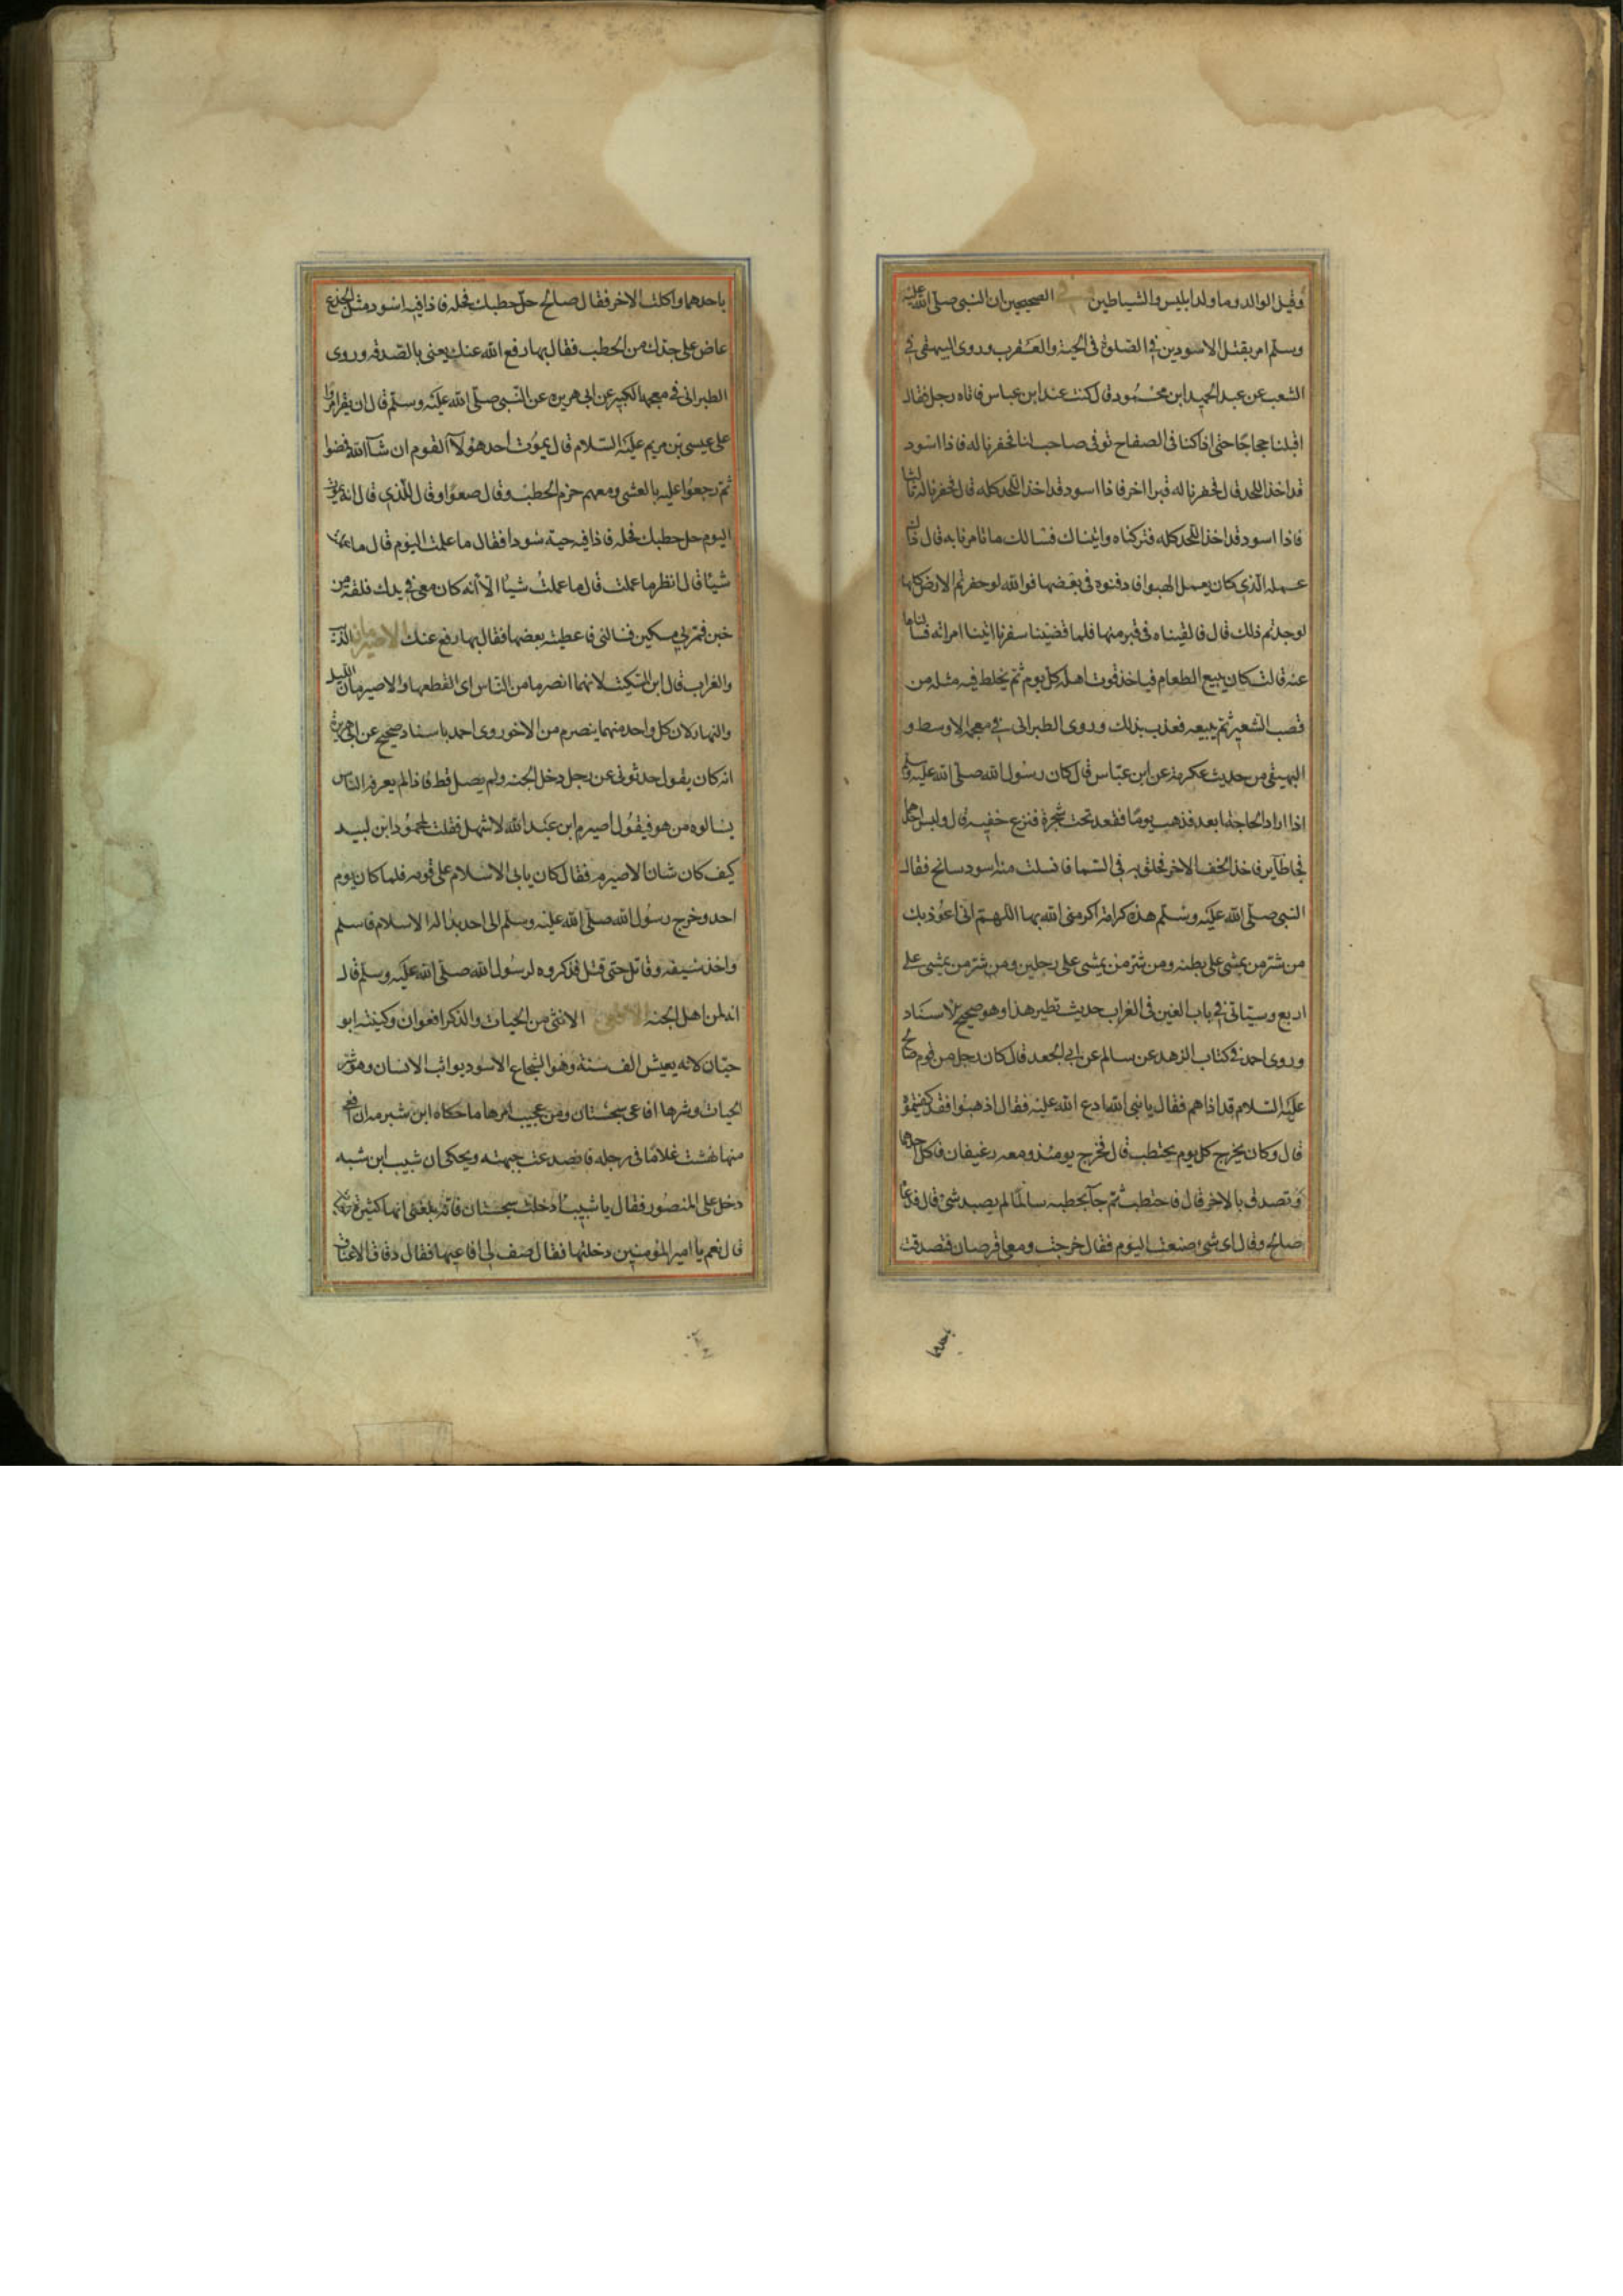 وقيل الوالد وما ولد ابليس والشياطين وفي الصحيحين ان النبي صلى الله عليه
وسلم امر بقتل الاسودين في الصلوة في الحية والعقرب وروى البيهقي في
الشعب عن عبد الحميد ابن محمود قال كنت عند ابن عباس فاتاه رجل فقال
اقبلنا حجاجا حتى اذا كنا في الصفاح توفى صاحب لنا فحفرنا له فاذا اسود
قد اخذ اللحد قال فحفرنا له قبرا اخر فاذا اسود قد اخذ اللحد كله قال فحفرنا له ثالثا
فاذا اسود قد اخذ اللحد كله فتركناه واتيناك فسالك ما تامرنا به قال ذاك
عمله الذي كان يعمل اذهبوا فادفنوه في بعضها فوالله لو حفرتم الارض كلها
لوجدتم ذلك قال فالقيناه في قبر منها فلما قضينا سفرنا اتينا امراته فسالناها
عنه قالت كان يبيع الطعام فياخذ قوت اهله كل يوم ثم يخلط فيه مثله من
قصب الشعير ثم يبيعه فعذب بذلك وروى الطبراني في معجمه الاوسط و
البيهقي من حديث عكرمة عن ابن عباس قال كان رسول الله صلى الله عليه وسلم
اذا اراد الحاجة ابعد فذهب يوما فقعد تحت شجرة فنزع خفيه قال ولبس احدهما
فجا طاير فاخذ الخف الاخر فحلق به في السما فانسلت منه اسود سالخ فقال
النبي صلى الله عليه وسلم هذه كرامة اكرمني الله بها اللهم اني اعوذ بك
من شر من يمشي على بطنه ومن شر من يمشي على رجلين ومن شر من يمشي على
اربع وسياتي في باب الغين في الغراب حديث نظير هذا وهو صحيح الاسناد
وروى احمد في كتاب الزهد عن سالم عن ابي الجعد قال كان رجل من قوم صالح
عليه السلام قد اذاهم فقال يا نبي الله ادع الله عليه فقال اذهبوا فقد كفيتموه
قال وكان يخرج كل يوم يحتطب قال فخرج يومئذ ومعه رغيفان فاكل احدهما
وتصدق بالاخر قال فاحتطب ثم جآ بحطبه سالما لم يصبه شيء قال فدعا
صالح وقال اي شيء صنعت اليوم فقال خرجت ومعي قرصان فتصدقت
باحدهما واكلت الاخر فقال صالح حل حطبك فحله فاذا فيه اسود مثل الجذع
عاض على جذل من الحطب فقال بها رفع الله عنك يعني بالصدقة وروى
الطبراني في معجمه الكبير عن ابي هريره عن النبي صلى الله عليه وسلم قال ان نفرا مروا
على عيسى بن مريم عليه السلام قال يموت احد هولآ القوم ان شآ الله فمضوا
ثم رجعوا عليه بالعشي ومعهم حزم الحطب وقال ضعوا وقال للذي قال انه يموت
اليوم حل حطبك فحله فاذا فيه حية سودا فقال ما عملت اليوم قال ما عملت
شيئا قال انظر ما عملت قال ما عملت شيئا الا انه كان معي في يدي فلقة من
خبز فمر بي مسكين فسالني فاعطيته بعضها فقال بها رفع عنك الاصرمان الذئب
والغراب قال ابن السكيت لانهما انصرما من الناس اي انقطعها والاصرمان الليل
والنهار لان كل واحد منهما ينصرم من الاخر روى احمد باسناد صحيح عن ابي هريرة
انه كان يقول حدثوني عن رجل دخل الجنه ولم يصل قط فاذا لم يعرفه الناس
يسالوه من هو فيقول اصيرم ابن عبد الله لاشهل فقلت لمحمود ابن لبيد
كيف كان شان الاصيرم فقال كان يابى الاسلام على قومه فلما كان يوم
احد وخرج رسول الله صلى الله عليه وسلم الى احد بدا له الاسلام فاسلم
واخذ سيفه وقاتل حتى قتل فذكروه لرسول الله صلى الله عليه وسلم قال
انه لمن اهل الجنه الافعى الانثى من الحيات والذكر افعوان وكنيته ابو
حيان لانه يعيش الف سنة وهو الشجاع الاسود يواثب الانسان وهو شر
الحيات وشرها افاعي سجستان ومن عجيب امرها ما حكاه ابن شبرمه ان افعى
منها نهشت غلاما في رجله فانصدعت جبهته ويحكى ان شبيب ابن شبه
دخل على المنصور فقال يا شبيب ادخلت سجستان فانه بلغني انها كثيرة
قال نعم يا امير المؤمنين دخلتها فقال صف لي افاعيها فقال دقاق الاعناق